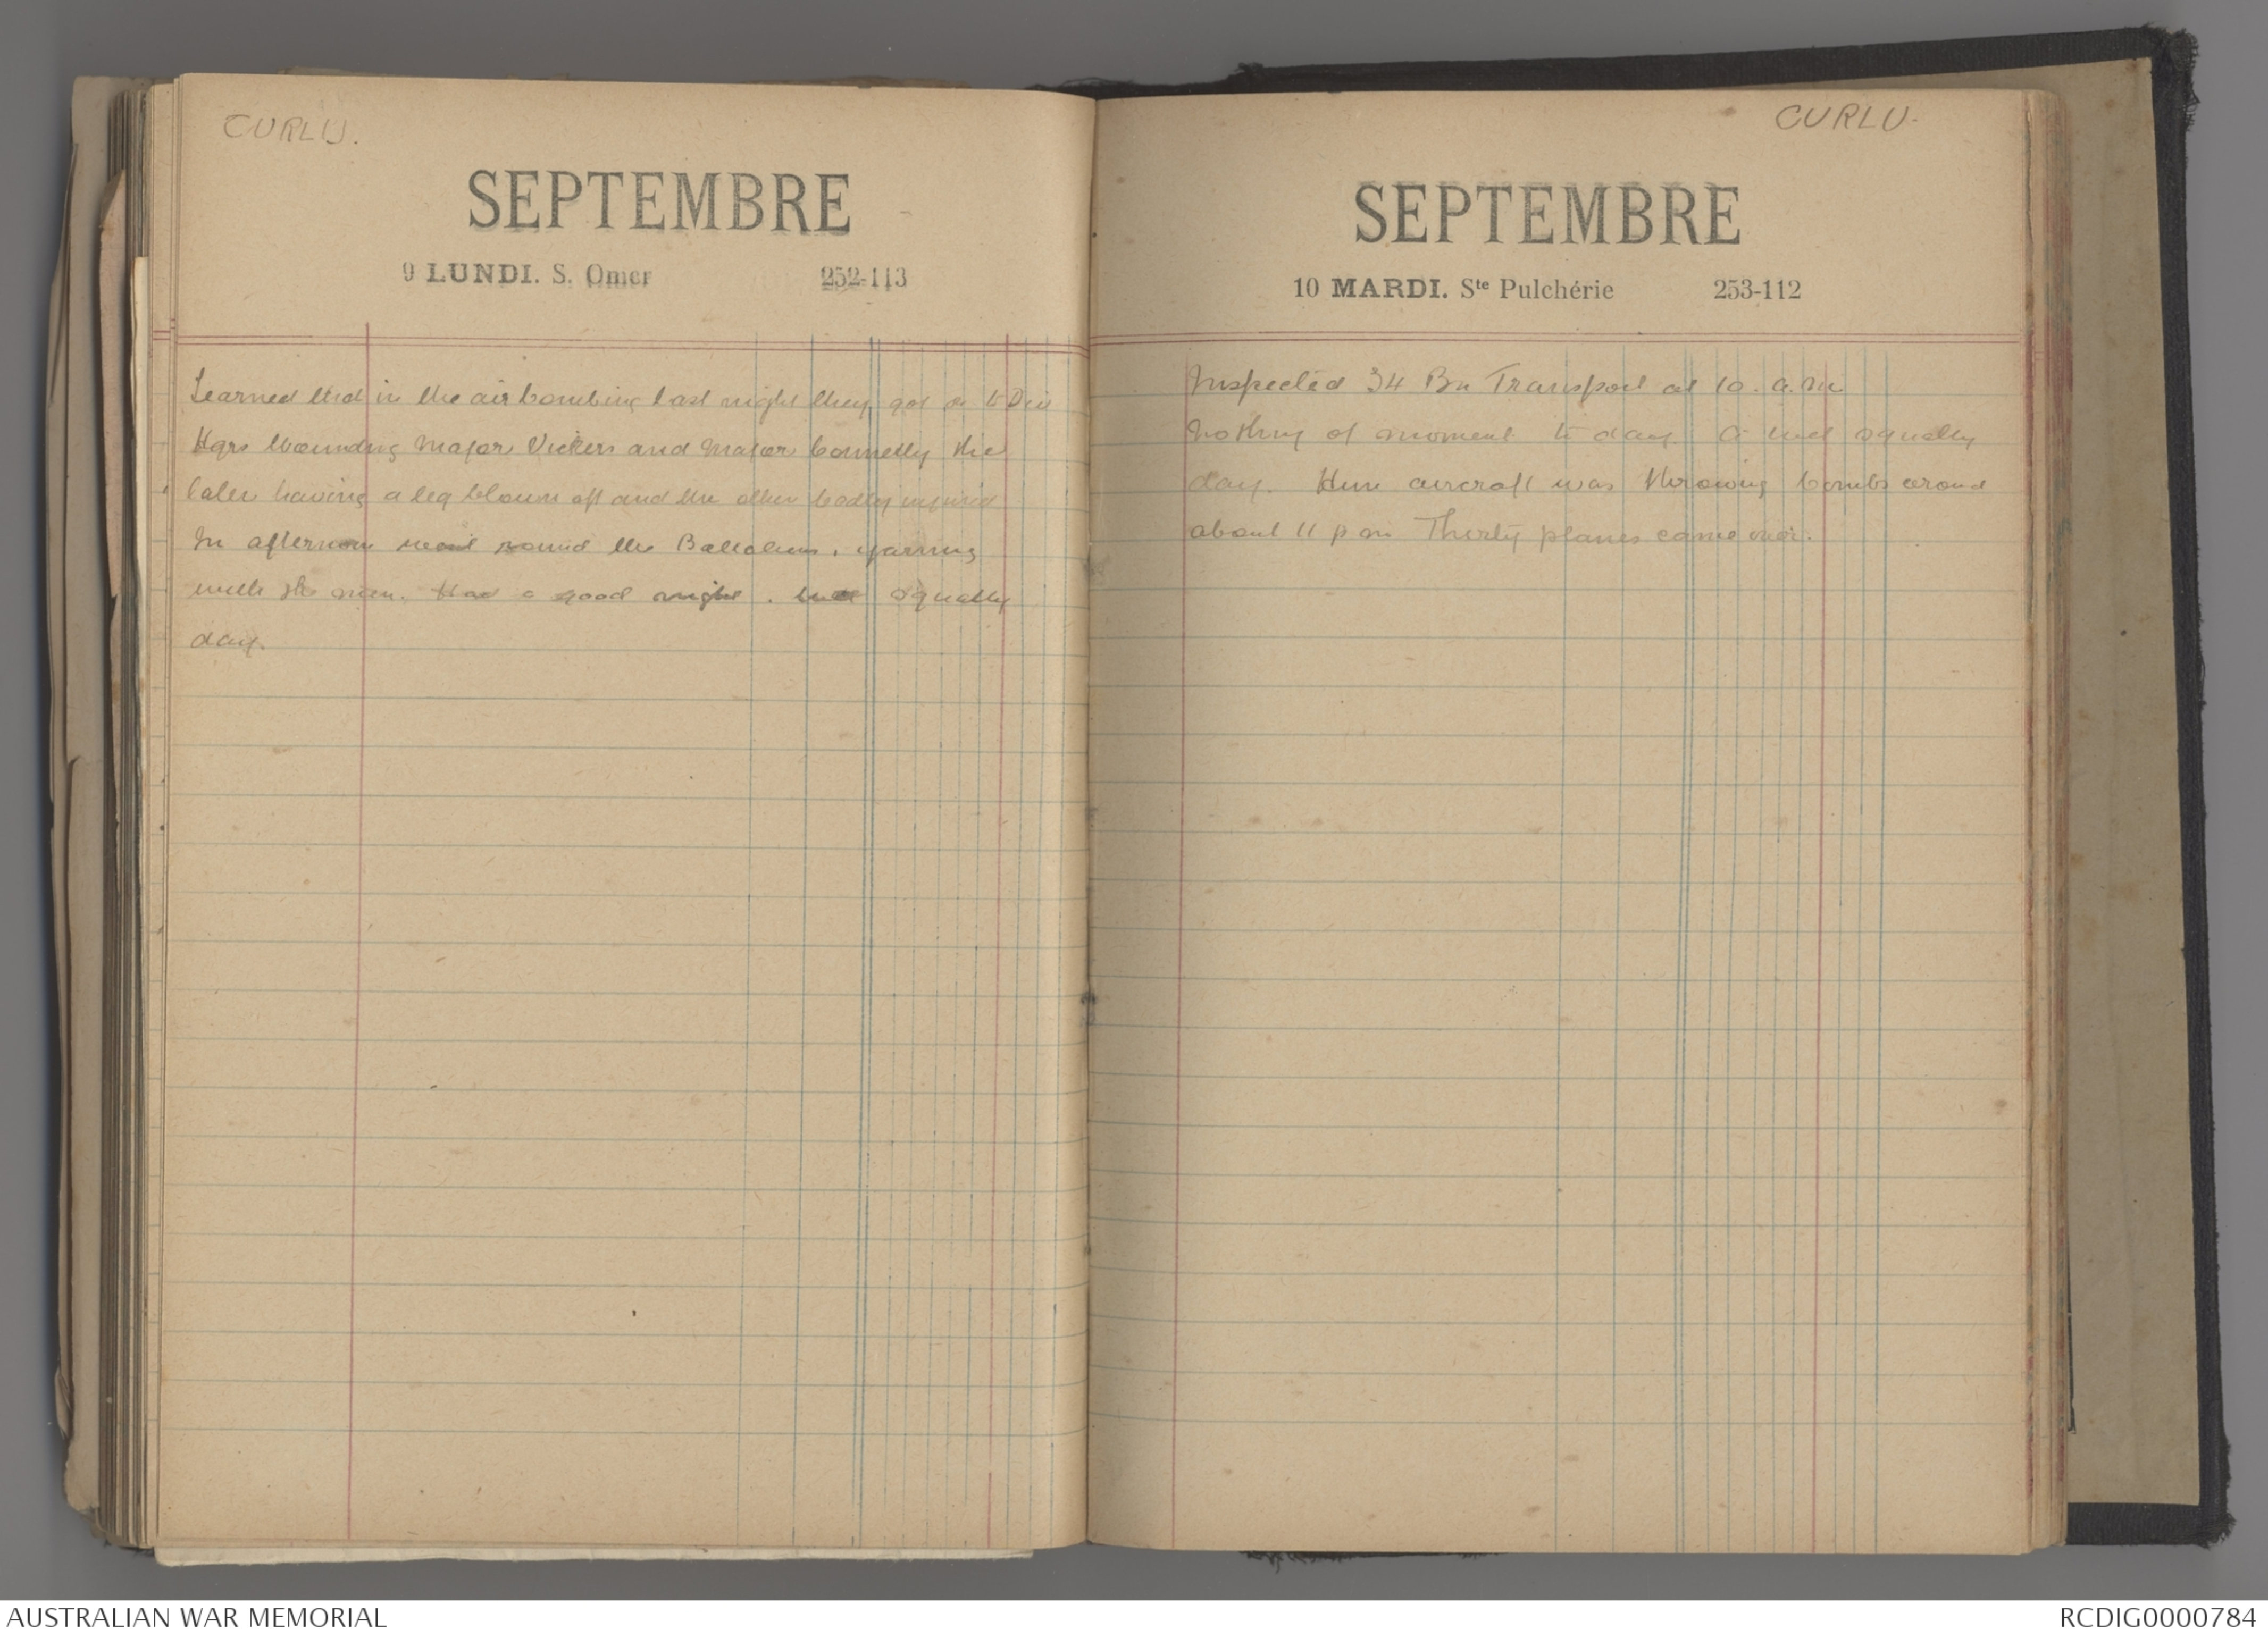 CURLU.
SEPTEMBRE
9 LUNDI. S. Omer 252-113
Learned that in the air bombing last night they got on to Div
Hqrs wounding Major Vickers and Major Connelly the
later having a leg blown off and the other badly injured
In afternoon went round the Battalions, yarning
with the men. Had a good night. wet squally
day.
CURLU.
SEPTEMBRE
10 MARDI. Ste Pulchérie 253-112
Inspected 34 Bn Transport at 10. a.m.
Nothing of moment to day. A wet squally
day. Hun aircraft was throwing bombs around
about 11 p m Thirty planes came over.
AUSTRALIAN WAR MEMORIAL
RCDIG0000784